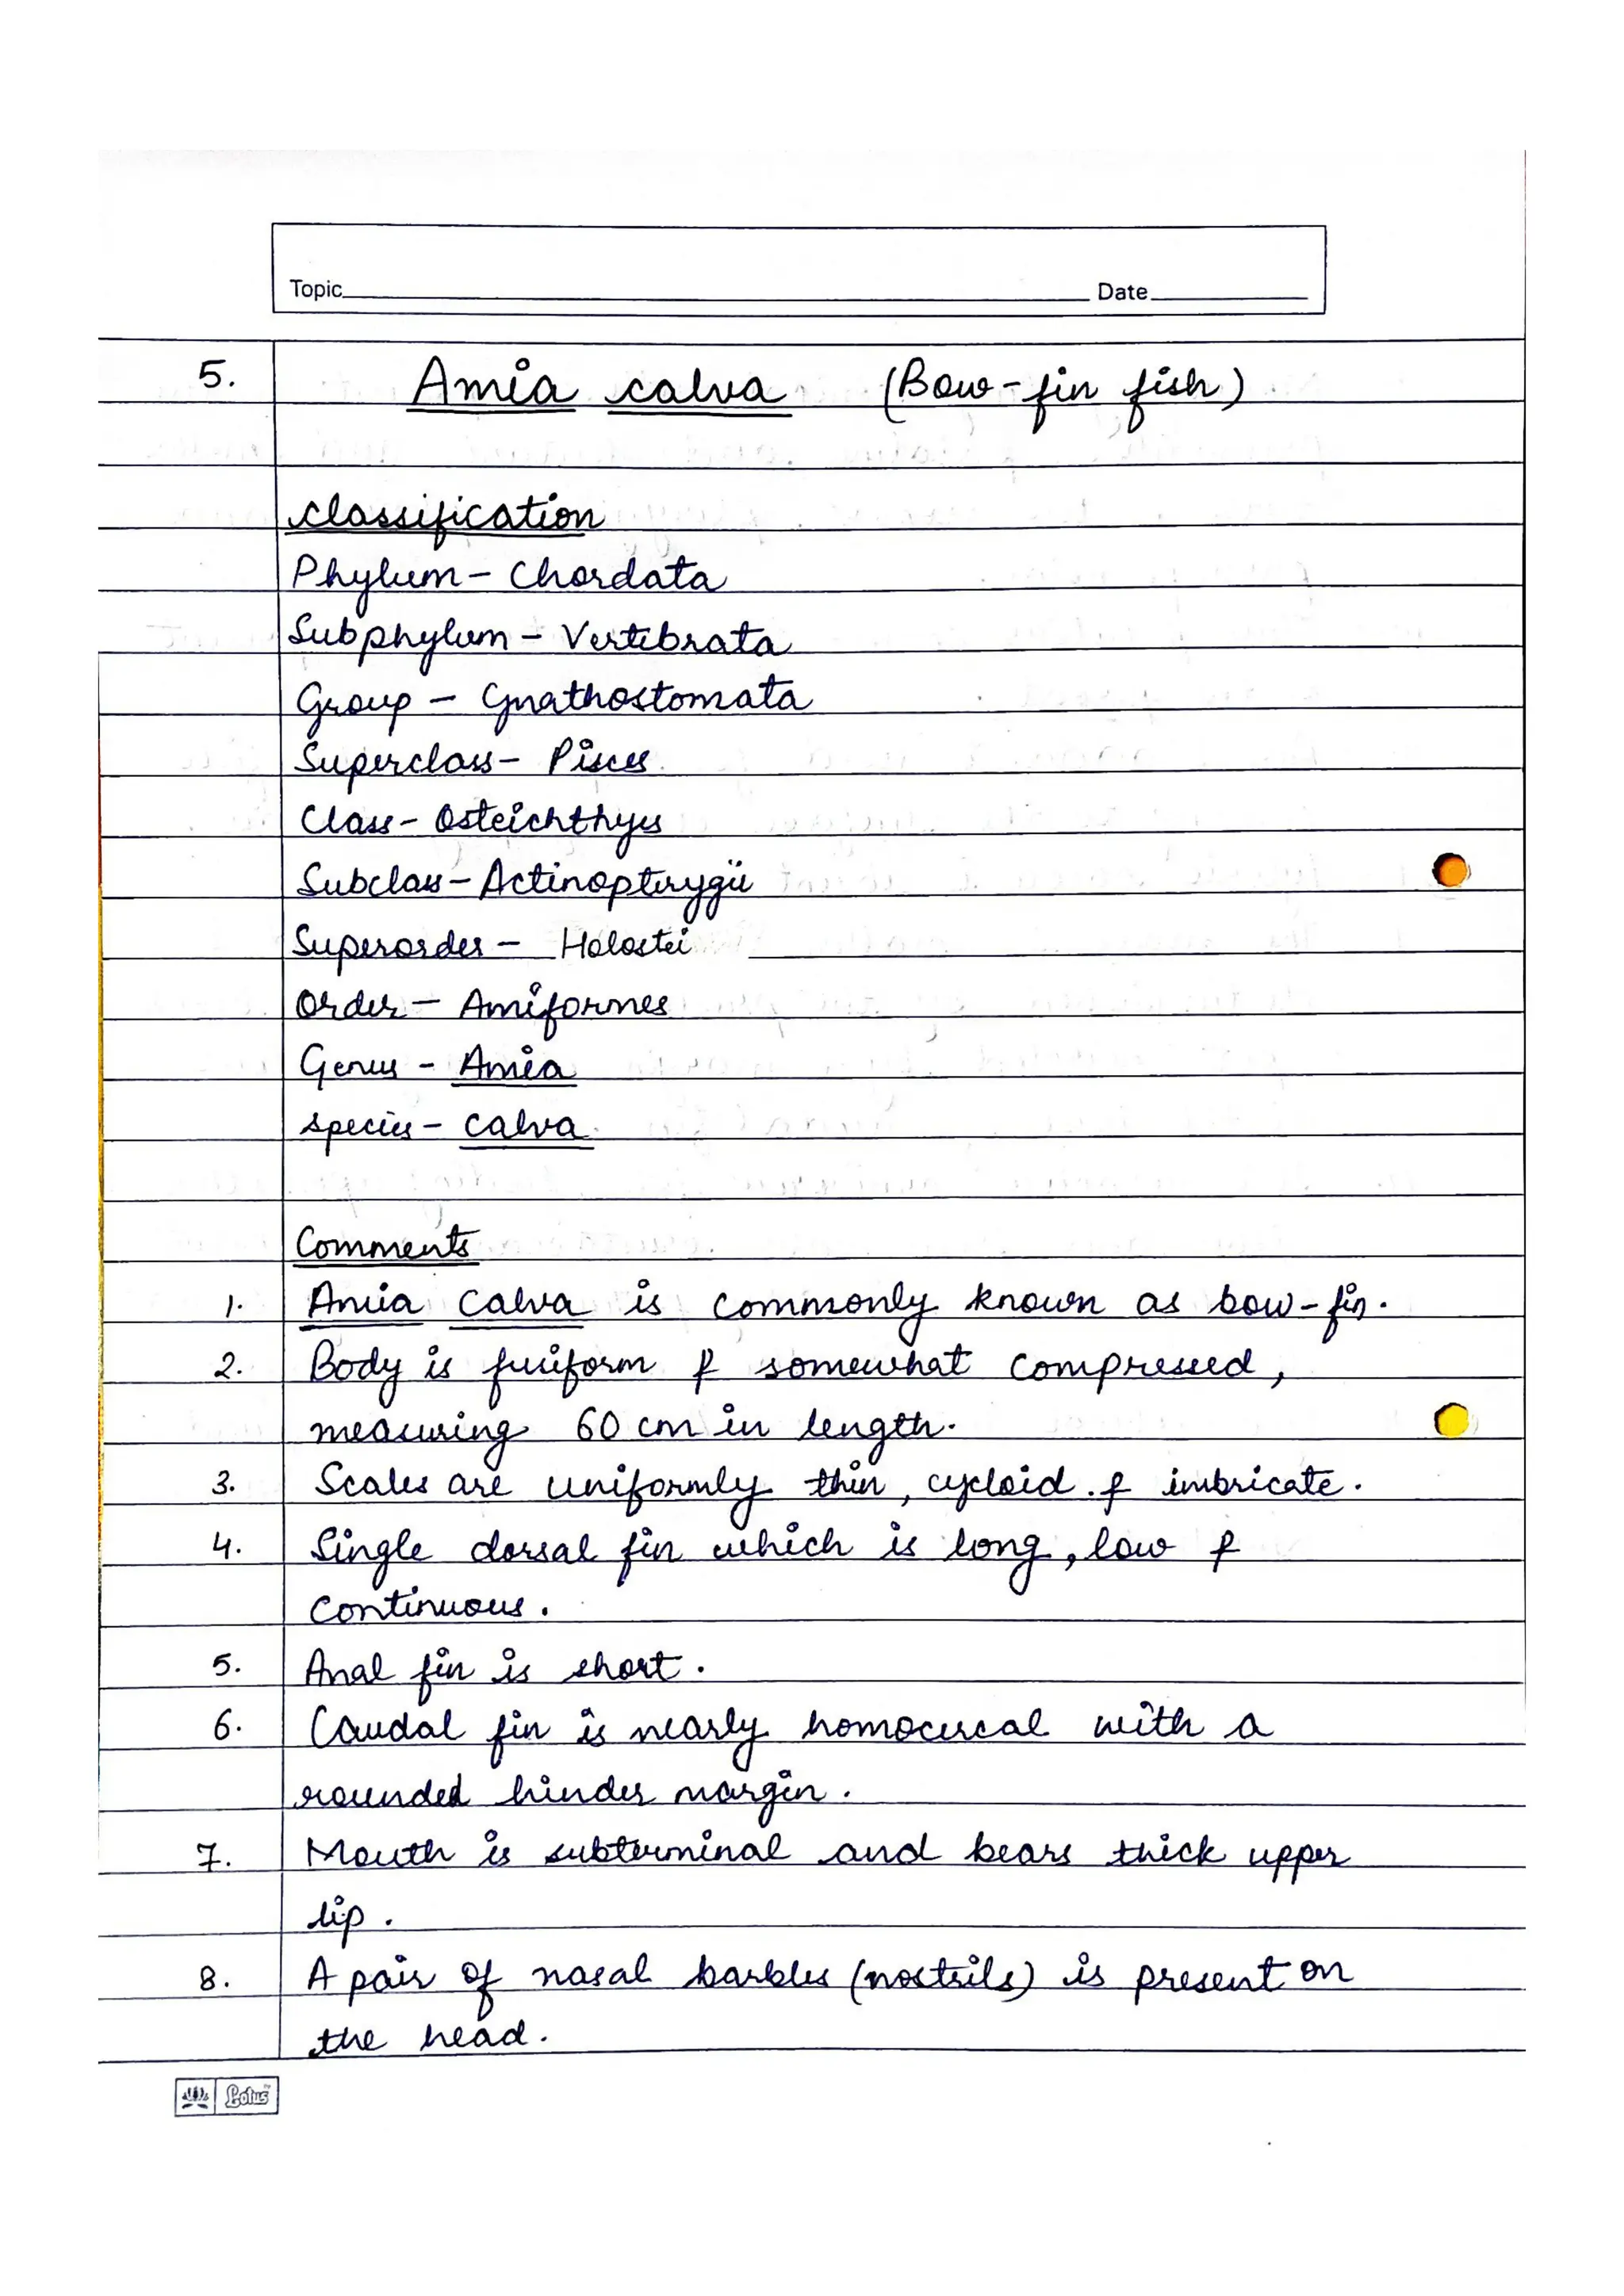 Topic Date
5. Amia calva (Bow-fin fish)
classification
Phylum - Chordata
Subphylum - Vertibrata
Group - Gnathostomata
Superclass - Pisces
Class - Osteichthyes
Subclass - Actinopterygii
Superorder - Holostei
Order - Amiformes
Genus - Amia
species - calva
Comments
1. Amia calva is commonly known as bow-fin.
2. Body is fusiform & somewhat compressed,
measuring 60 cm in length.
3. Scales are uniformly thin, cycloid & imbricate.
4. Single dorsal fin which is long, low &
continuous.
5. Anal fin is short.
6. Caudal fin is nearly homocercal with a
rounded hinder margin.
7. Mouth is subterminal and bears thick upper
lip.
8. A pair of nasal barbles (nostrils) is present on
the head.
Lotus